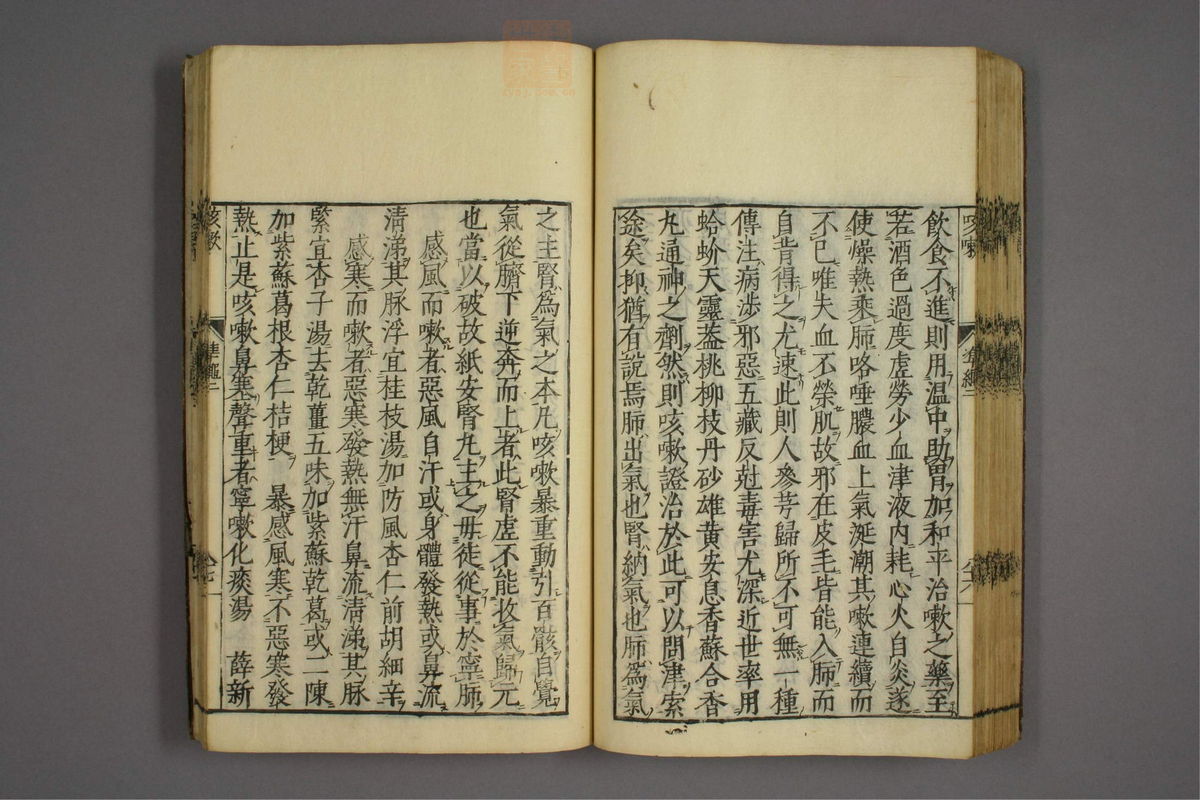 飲食不進則用温中助胃加和平治嗽之藥至
若酒色過度虛勞少血津液内耗心火自炎遂
使燥熱乘肺咯唾膿血上氣涎潮其嗽連續而
不已唯夫血不榮肌故邪在皮毛皆能入肺而
自背得之尤速此則人參芎歸所不可無一種
傳注病渉邪惡五藏反尅毒害尤深近世率用
蛤蚧天靈葢桃柳枝丹砂雄黄安息香蘇合香
丸通神之劑然則咳嗽證治於此可以問津索
途矣抑猶有說焉肺出氣也腎納氣也肺爲氣
之主腎爲氣之本凡咳嗽暴重動引百骸自覺
氣從臍下逆奔而上者此腎虛不能收氣歸元
也當以破故紙安腎丸主之毋徒從事於寧肺
感風而嗽者惡風自汗或身體發熱或鼻流
清涕其脉浮宜桂枝湯加防風杏仁前胡細辛
感寒而嗽者惡寒發熱無汗鼻流清涕其脉
緊宜杏子湯去乾薑五味加紫蘇乾葛或二陳
加紫蘇葛根杏仁桔梗 暴感風寒不惡寒發
熱止是咳嗽鼻塞聲重者寧嗽化痰湯 薛新
咳嗽
準繩二